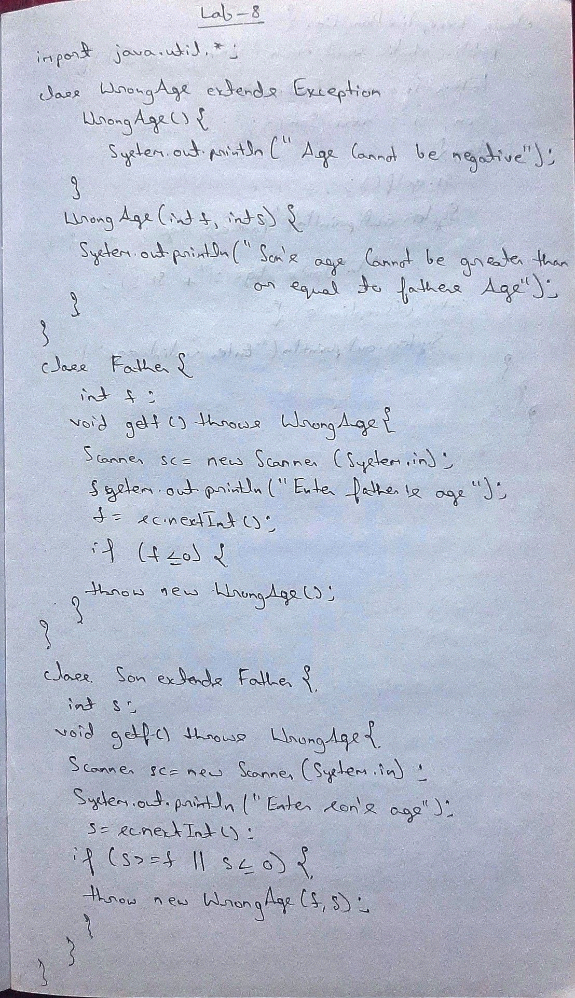 Lab-8
import java.util.*;
class WrongAge extends Exception
WrongAge() {
System.out.println (" Age Cannot be negative");
}
Wrong Age (int f, int s) {
System.out println (" Son's age Cannot be greater than
or equal to fathers Age");
}
}
class Father {
int f ;
void getf () throws WrongAge {
Scanner sc = new Scanner (System.in);
System.out.println ("Enter father's age ");
f = sc.nextInt ();
if (f ≤ 0) {
throw new WrongAge ();
}
}
class Son extends Father {
int s;
void getf() throws WrongAge {
Scanner sc = new Scanner (System.in) ;
System.out.println (" Enter son's age");
s = sc.nextInt () ;
if (s >= f || s ≤ 0) {
throw new WrongAge (f, s) ;
}
}
}